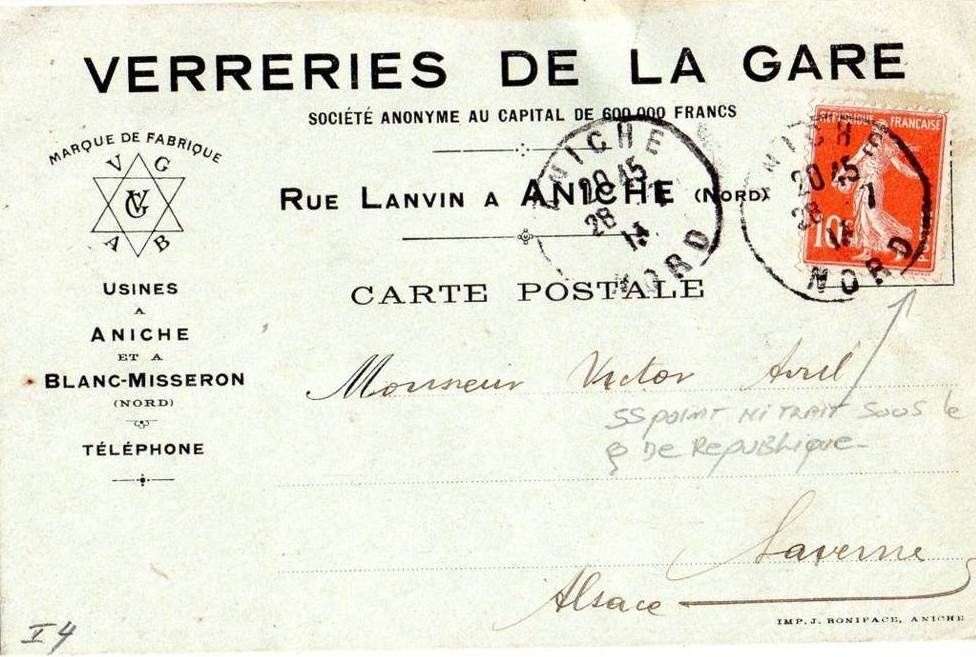 VERRERIES DE LA GARE
SOCIÉTÉ ANONYME AU CAPITAL DE 600.000 FRANCS
MARQUE DE FABRIQUE
V G
VG
A B
RUE LANVIN A ANICHE (NORD)
CARTE POSTALE
USINES
A
ANICHE
ET A
BLANC-MISSERON
(NORD)
TÉLÉPHONE
ANICHE
20 45
28 7
14
NORD
REPUBLIQUE FRANÇAISE
10
ANICHE
20 45
28 7
14
NORD
Monsieur Victor Avril
SS POINT NI TRAIT SOUS le
Q DE REPUBLIQUE
Saverne
Alsace
IMP. J. BONIFACE, ANICHE
I 4